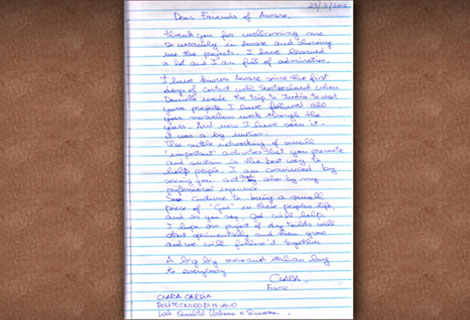 23/3/2012
Dear Friends of Aware,
thank you for wellcoming me
so warmly in Aware and showing
me the projects. I have learned
a lot and I am full of admiration.
I have known Aware since the first
days of contact with Switzerland when
Danielle made the trip to India to visit
your projects. I have followed all
your marvelous work through the
years. And now I have seen it -
it was a big emotion.
The subtle networking of small
"important" activities that you promote
and sustain is the best way to
help people. I am convinced by
seeing you acting also by my
professional experience
So continue to bring a small
piece of "God" in these peoples life,
and as you say God will help.
I hope project of dry toilets will
start experimentally and then grow
and we will follow it together
A big big swiss and italian hug
to everybody
CLARA
CLARA CARDIA
POLITECNICO DI MILANO
Lab. Qualità Urbana e Sicurezza